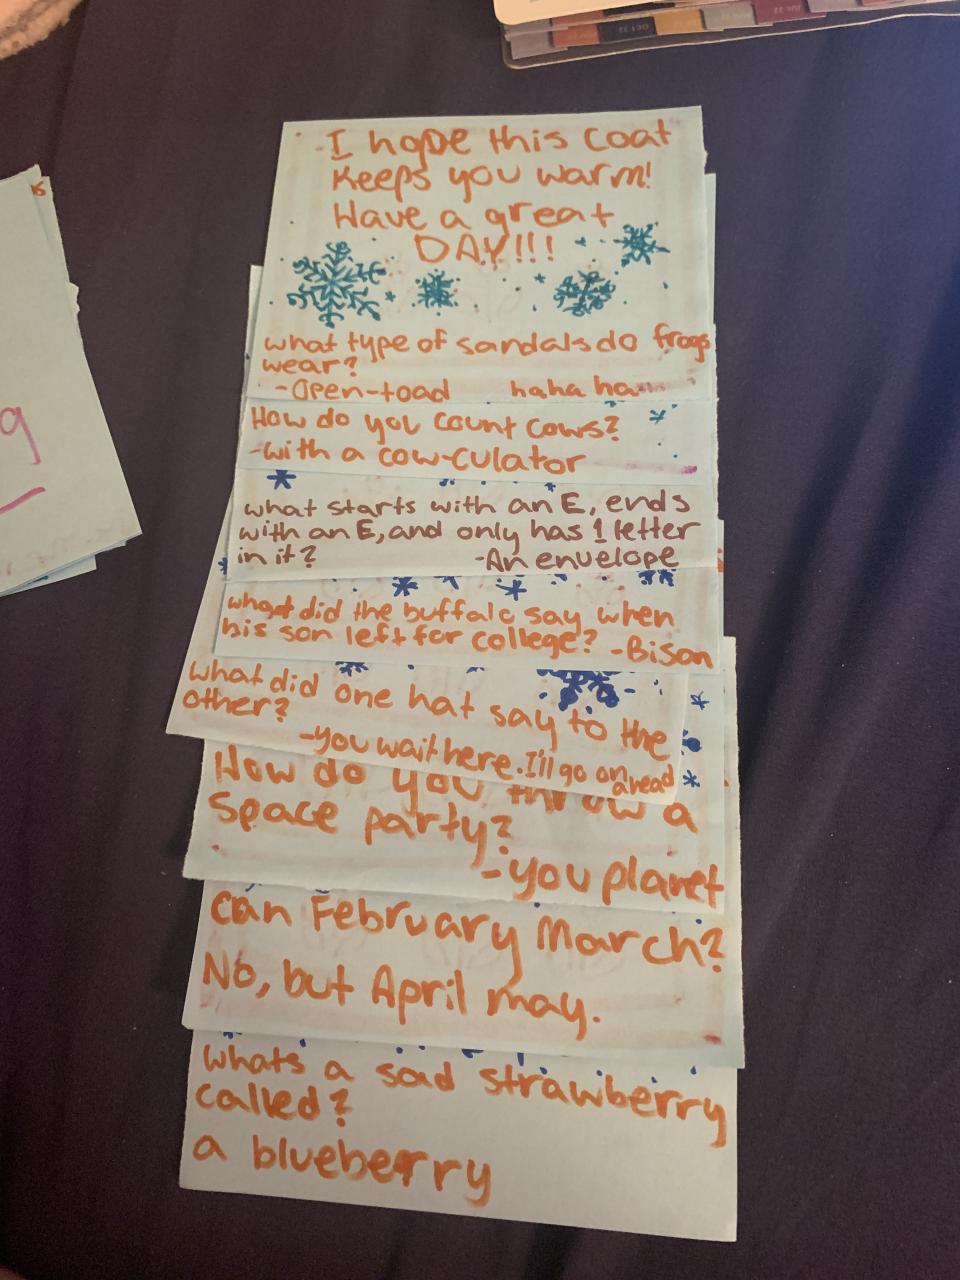 I hope this coat
Keeps you warm!
Have a great
DAY!!!
what type of sandals do frogs
wear?
-Open-toad haha ha
How do you count cows?
-with a cow-culator
what starts with an E, ends
with an E, and only has 1 letter
in it? -An envelope
what did the buffalo say when
his son left for college? -Bison
what did one hat say to the
other?
-you wait here. I'll go on
ahead
How do you throw a
space party?
-you planet
can February March?
No, but April may.
whats a sad strawberry
called?
a blueberry
g